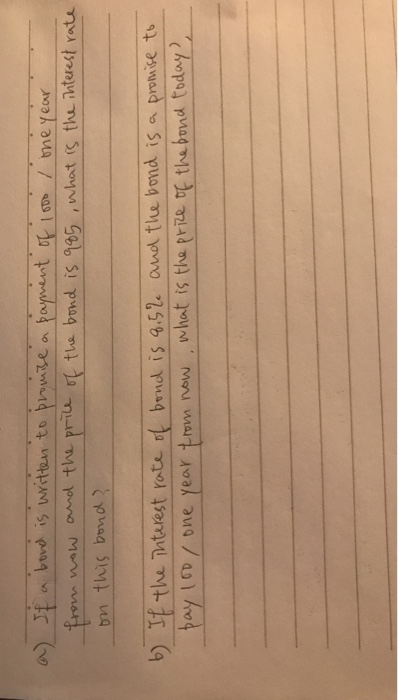 a) If a bond is written to promise a payment of 1000 / one year
from now and the price of the bond is 985, what is the interest rate
on this bond?
b) If the interest rate of bond is 8.5% and the bond is a promise to
pay 100 / one year from now, what is the price of the bond today?,